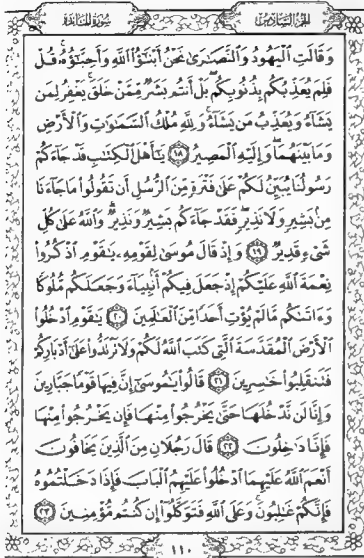 الجزء السادس
سورة المائدة
وَقَالَتِ الْيَهُودُ وَالنَّصَارَىٰ نَحْنُ أَبْنَاءُ اللَّهِ وَأَحِبَّاؤُهُ قُلْ
فَلِمَ يُعَذِّبُكُم بِذُنُوبِكُم بَلْ أَنتُم بَشَرٌ مِّمَّنْ خَلَقَ يَغْفِرُ لِمَن
يَشَاءُ وَيُعَذِّبُ مَن يَشَاءُ وَلِلَّهِ مُلْكُ السَّمَاوَاتِ وَالْأَرْضِ
وَمَا بَيْنَهُمَا وَإِلَيْهِ الْمَصِيرُ ١٨ يَا أَهْلَ الْكِتَابِ قَدْ جَاءَكُمْ
رَسُولُنَا يُبَيِّنُ لَكُمْ عَلَىٰ فَتْرَةٍ مِّنَ الرُّسُلِ أَن تَقُولُوا مَا جَاءَنَا
مِن بَشِيرٍ وَلَا نَذِيرٍ فَقَدْ جَاءَكُم بَشِيرٌ وَنَذِيرٌ وَاللَّهُ عَلَىٰ كُلِّ
شَيْءٍ قَدِيرٌ ١٩ وَإِذْ قَالَ مُوسَىٰ لِقَوْمِهِ يَا قَوْمِ اذْكُرُوا
نِعْمَةَ اللَّهِ عَلَيْكُمْ إِذْ جَعَلَ فِيكُمْ أَنبِيَاءَ وَجَعَلَكُم مُّلُوكًا
وَآتَاكُم مَّا لَمْ يُؤْتِ أَحَدًا مِّنَ الْعَالَمِينَ ٢٠ يَا قَوْمِ ادْخُلُوا
الْأَرْضَ الْمُقَدَّسَةَ الَّتِي كَتَبَ اللَّهُ لَكُمْ وَلَا تَرْتَدُّوا عَلَىٰ أَدْبَارِكُمْ
فَتَنقَلِبُوا خَاسِرِينَ ٢١ قَالُوا يَا مُوسَىٰ إِنَّ فِيهَا قَوْمًا جَبَّارِينَ
وَإِنَّا لَن نَّدْخُلَهَا حَتَّىٰ يَخْرُجُوا مِنْهَا فَإِن يَخْرُجُوا مِنْهَا
فَإِنَّا دَاخِلُونَ ٢٢ قَالَ رَجُلَانِ مِنَ الَّذِينَ يَخَافُونَ
أَنْعَمَ اللَّهُ عَلَيْهِمَا ادْخُلُوا عَلَيْهِمُ الْبَابَ فَإِذَا دَخَلْتُمُوهُ
فَإِنَّكُمْ غَالِبُونَ وَعَلَى اللَّهِ فَتَوَكَّلُوا إِن كُنتُم مُّؤْمِنِينَ ٢٣
١١٠